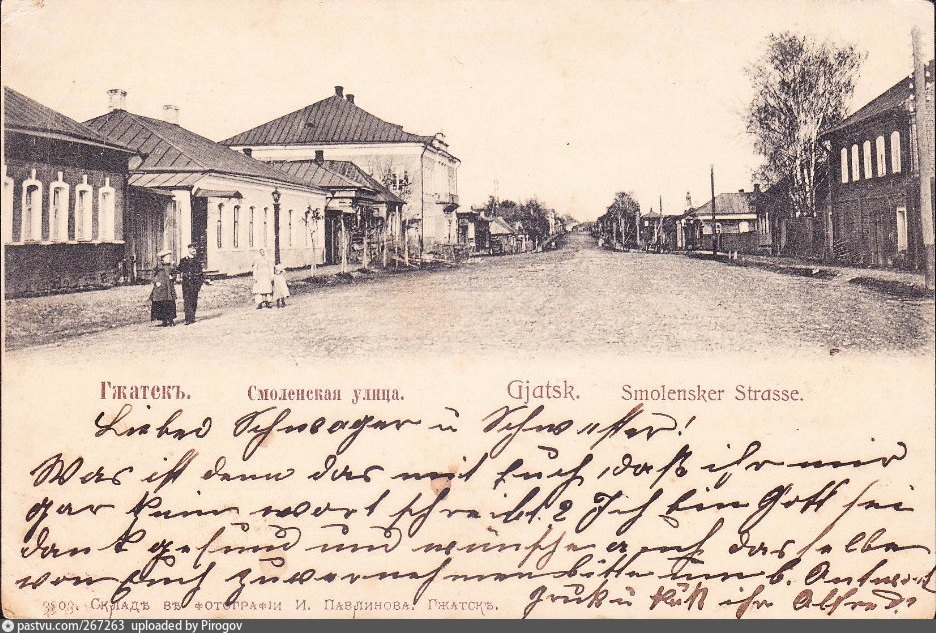 Гжатскъ. Смоленская улица. Gjatsk. Smolensker Strasse.
Lieber Schwager u Schwester!
Was ist denn das mit Euch, daß ihr mir
gar kein wort schreibt? Ich bin Gott sei
dank gesund und wünsche auch dasselbe
von Euch zuvernehmen bitte um b. Antwort
3503. Складъ въ фотографіи И. Павлинова. Гжатскъ.
Gruß u Kuß ihr Alfred.
pastvu.com/267263 uploaded by Pirogov